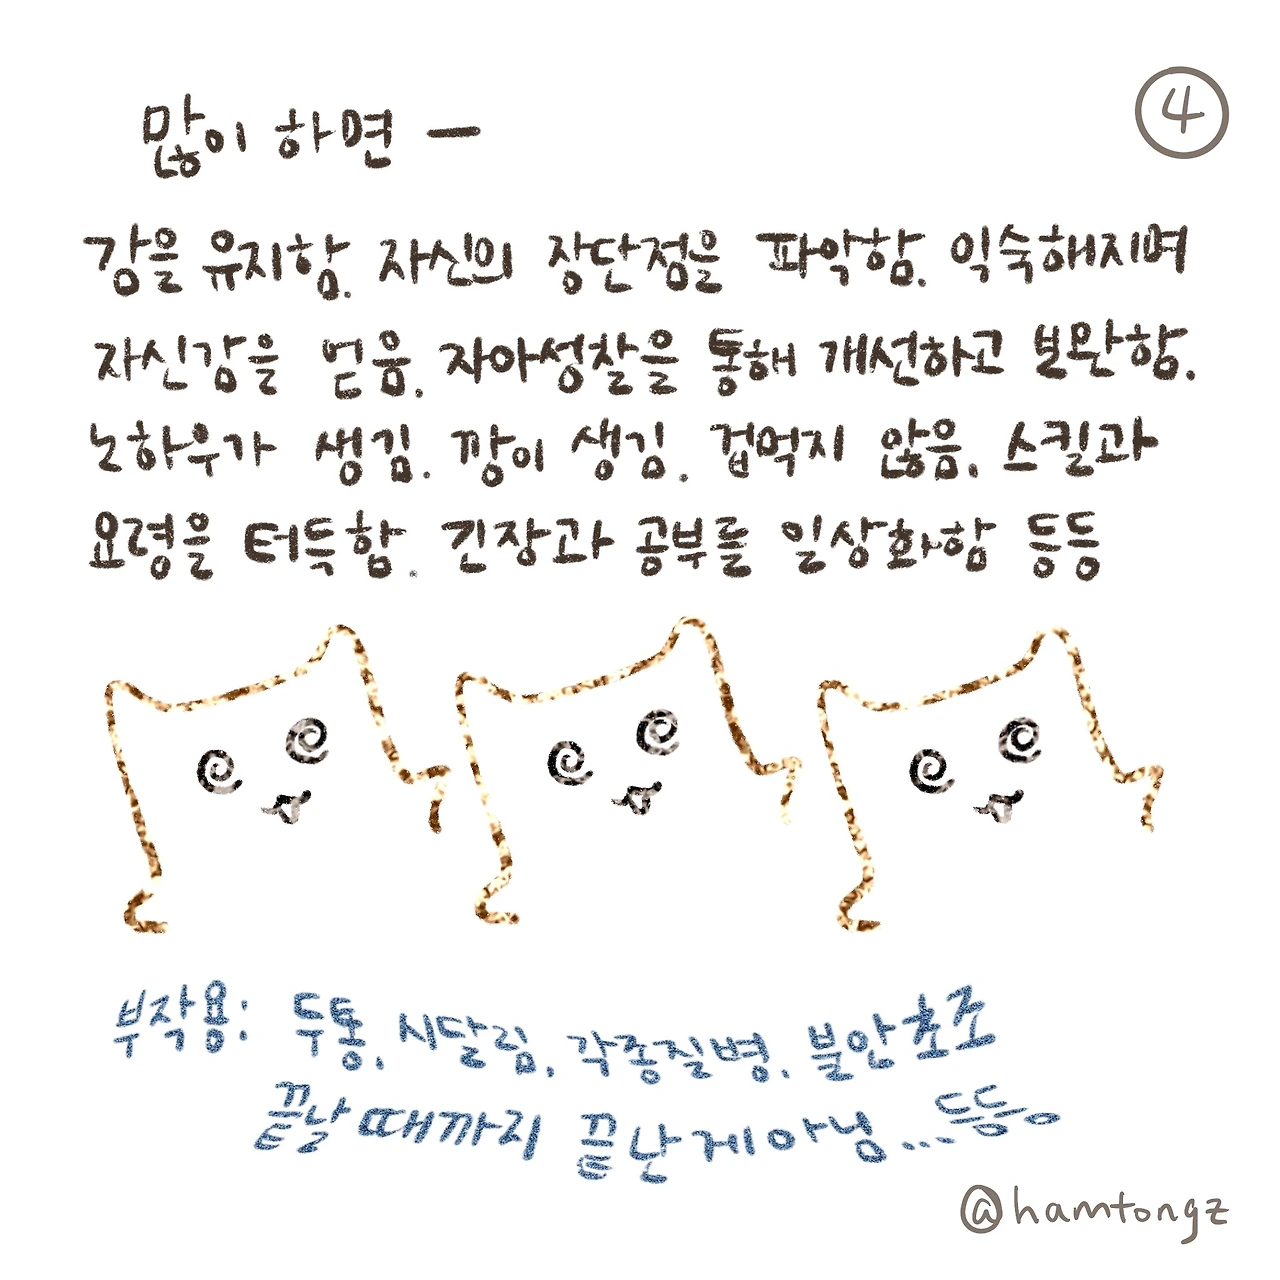 ④
많이 하면 —
감을 유지함. 자신의 장단점을 파악함. 익숙해지며
자신감을 얻음. 자아성찰을 통해 개선하고 보완함.
노하우가 생김. 깡이 생김. 겁먹지 않음. 스킬과
요령을 터득함. 긴장과 공부를 일상화함 등등
부작용: 두통, 시달림, 각종질병, 불안초조
끝날때까지 끝난게아닝...등등
@hamtongz